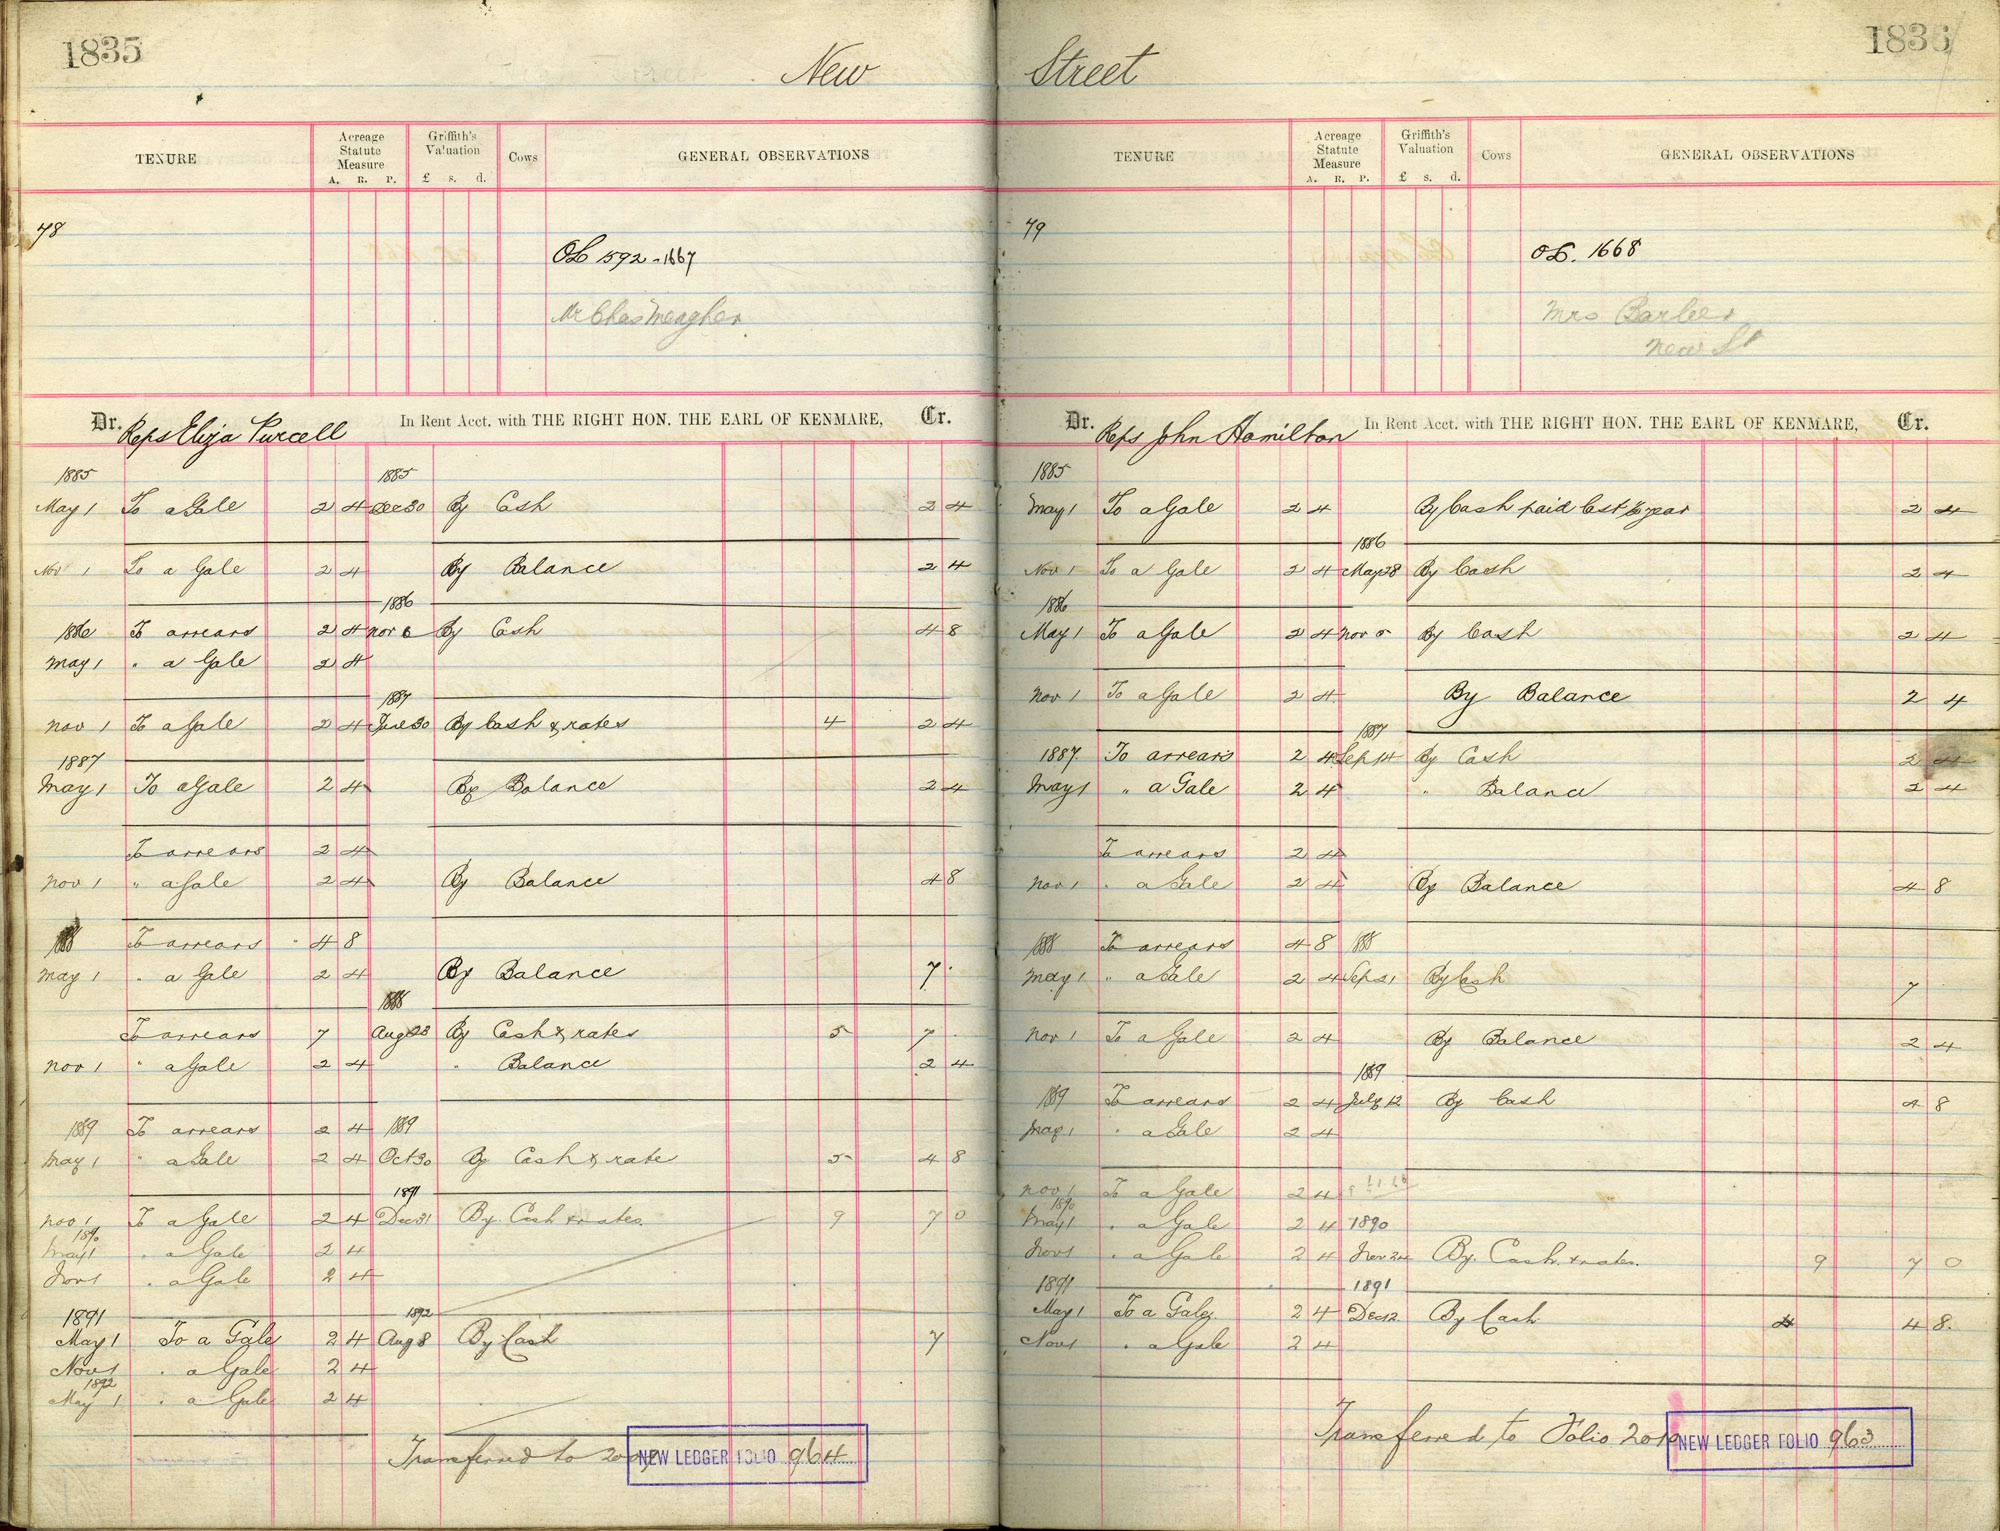 1835
New
TENURE
Acreage Statute Measure
A. R. P.
Griffith's Valuation
£ s. d.
Cows
GENERAL OBSERVATIONS
78
OL 1592-1667
Mr Chas Meagher
Dr. Reps Eliza Purcell In Rent Acct. with THE RIGHT HON. THE EARL OF KENMARE, Cr.
1885 1885
May 1 To a Gale 2 4 Dec 30 By Cash 2 4
Nov 1 To a Gale 2 4 By Balance 2 4
1886
1886 To arrears 2 4 Nov 6 By Cash 4 8
May 1 " a Gale 2 4
1887
Nov 1 To a Gale 2 4 June 30 By Cash & rates 4 2 4
1887
May 1 To a Gale 2 4 By Balance 2 4
To arrears 2 4
Nov 1 " a Gale 2 4 By Balance 4 8
1888 To arrears 4 8
May 1 " a Gale 2 4 By Balance 7
1888
To arrears 7 Aug 28 By Cash & rates 5 7
Nov 1 " a Gale 2 4 " Balance 2 4
1889 To arrears 2 4 1889
May 1 " a Gale 2 4 Oct 30 By Cash & rate 5 4 8
1891
Nov 1 To a Gale 2 4 Dec 31 By Cash & rates 9 7 0
1890
May 1 " a Gale 2 4
Nov 1 " a Gale 2 4
1891 1892
May 1 To a Gale 2 4 Aug 8 By Cash 7
Nov 1 " a Gale 2 4
1892
May 1 " a Gale 2 4
Transferred to
NEW LEDGER FOLIO 964
1836
Street
TENURE
Acreage Statute Measure
A. R. P.
Griffith's Valuation
£ s. d.
Cows
GENERAL OBSERVATIONS
79
OL. 1668
Mrs Barber
New St
Dr. Reps John Hamilton In Rent Acct. with THE RIGHT HON. THE EARL OF KENMARE, Cr.
1885
May 1 To a Gale 2 4 By Cash paid last ½ year 2 4
1886
Nov 1 To a Gale 2 4 May 28 By Cash 2 4
1886
May 1 To a Gale 2 4 Nov 5 By Cash 2 4
Nov 1 To a Gale 2 4 By Balance 2 4
1887
1887 To arrears 2 4 Sep 14 By Cash 2 4
May 1 " a Gale 2 4 " Balance 2 4
To arrears 2 4
Nov 1 " a Gale 2 4 By Balance 4 8
1888 To arrears 4 8 1888
May 1 " a Gale 2 4 Sep 21 By Cash 7
Nov 1 To a Gale 2 4 By Balance 2 4
1889
1889 To arrears 2 4 July 12 By Cash 4 8
May 1 " a Gale 2 4
Nov 1 To a Gale 2 4
1890
May 1 " a Gale 2 4 1890
Nov 1 " a Gale 2 4 Nov 24 By Cash & rates 9 7 0
1891 1891
May 1 To a Gale 2 4 Dec 12 By Cash 4 8
Nov 1 " a Gale 2 4
Transferred to Folio 2010
NEW LEDGER FOLIO 963